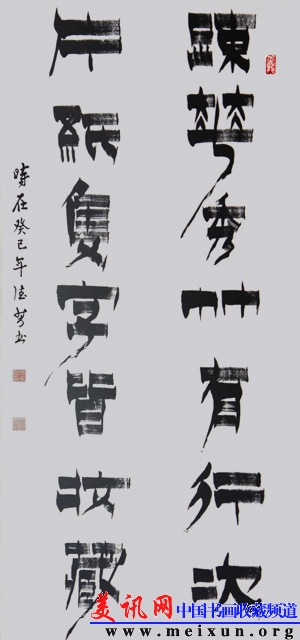 疎華秀竹有行次
片紙隻字皆收藏
時在癸巳年德书
美讯网 中国书画收藏频道
www.meixun.org